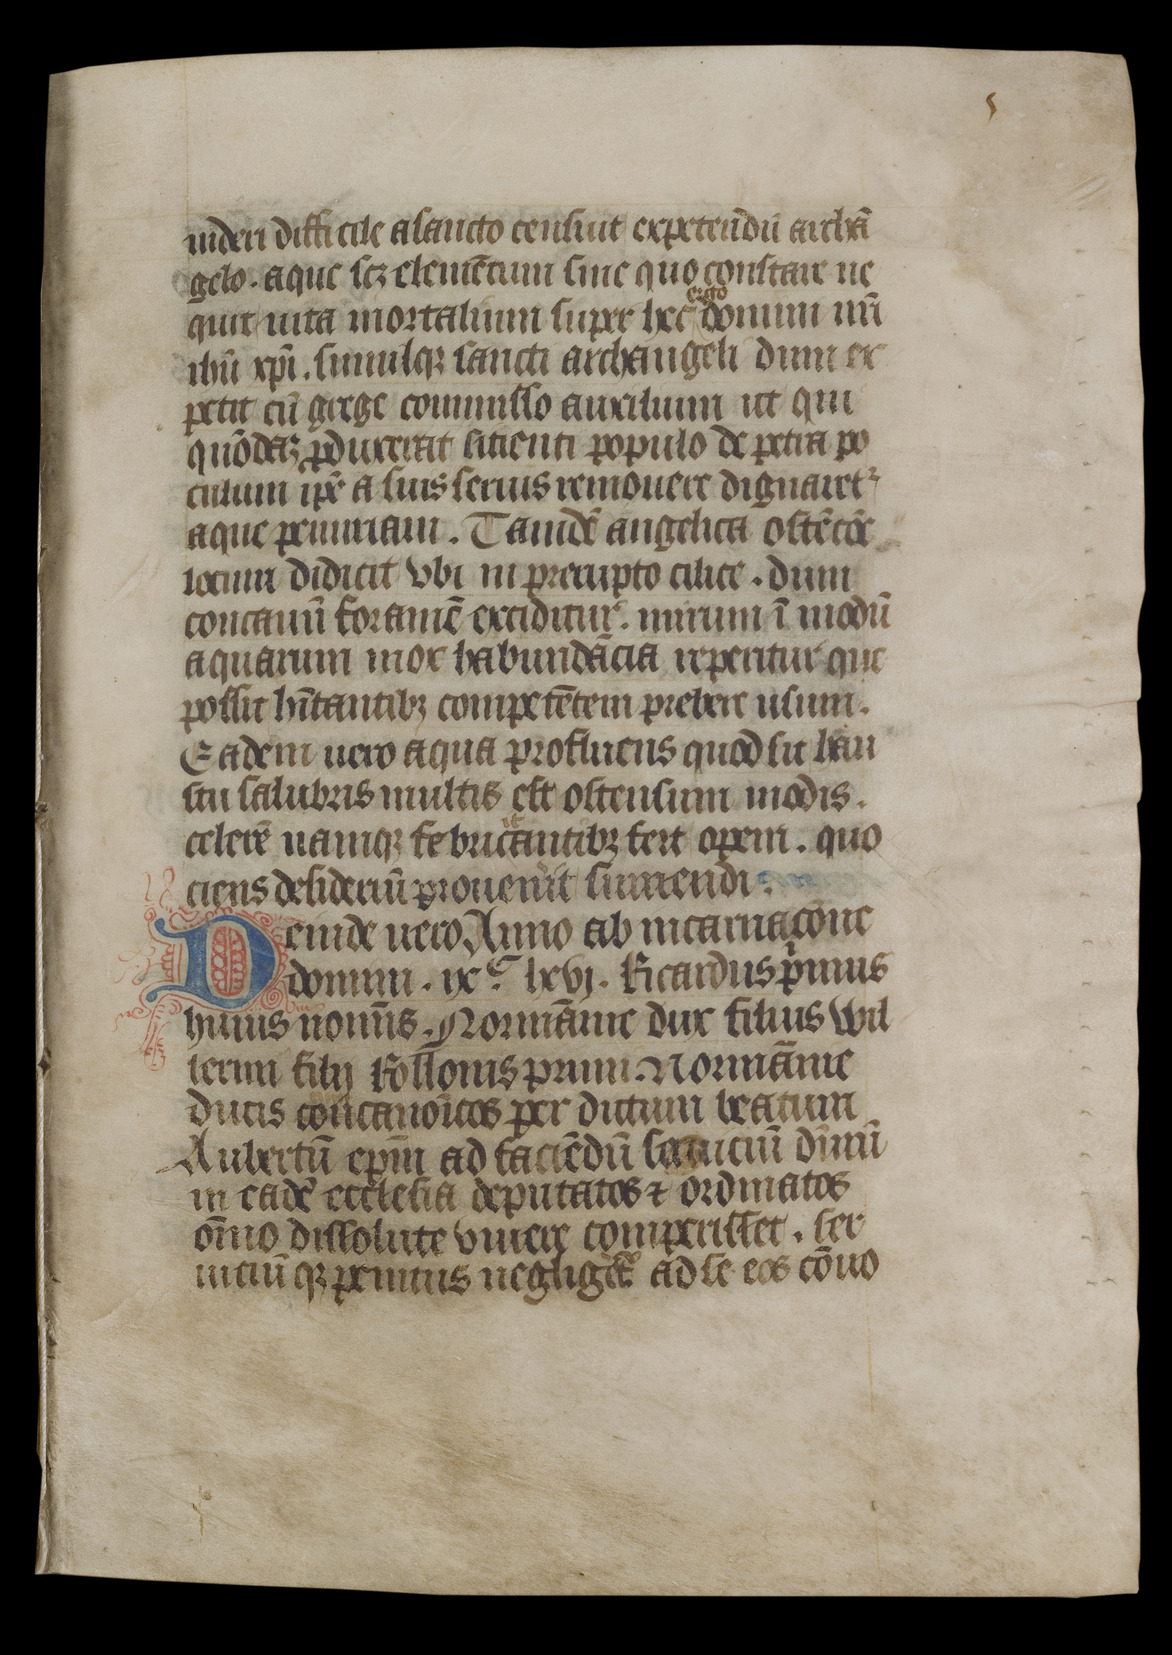 5
uideri difficile a sancto censuit expetendū archā
gelo. aque scꝫ elementum sine quo constare ne
quit uita mortalium super hec ergo dominum nr̄m
ihū xp̄i. simulqꝫ sancti archangeli dum ex
petit cū grege commisso auxilium ut qui
quōdaꝫ ꝓduxerat sitienti populo de petra po
culum ip̄e a suis seruis remouere dignaretᷣ
aque penuriam. Tandē angelica ostēcōe
locum didicit vbi in prerupto cilice. dum
concauū foramē exciditur. mirum ī modū
aquarum mox habundācia reperitur que
possit hītantibꝫ competētem prebere usum.
Eadem uero aqua profluens quod sit hau
stu salubris multis est ostensum modis.
celerē namqꝫ febricitantibꝫ fert opem. quo
ciens desiderium prouen̄it sumendi.
Deinde uero Anno ab incarnacōne
domini. ixᶜ. lxvj. Ricardus pͥmus
huius nomīs. Normānie dux filius Wil
lermi filij Rollonis primi. Normānie
ducis concanoīcos per dictum beatum
Aubertū ep̄m ad faciēdū seruiciū diuinū
in eadē ecclesia deputatos ⁊ ordinatos
ōīno dissolute viuere comperisset. ser
uiciū qꝫ penitus ad se eos cōuo